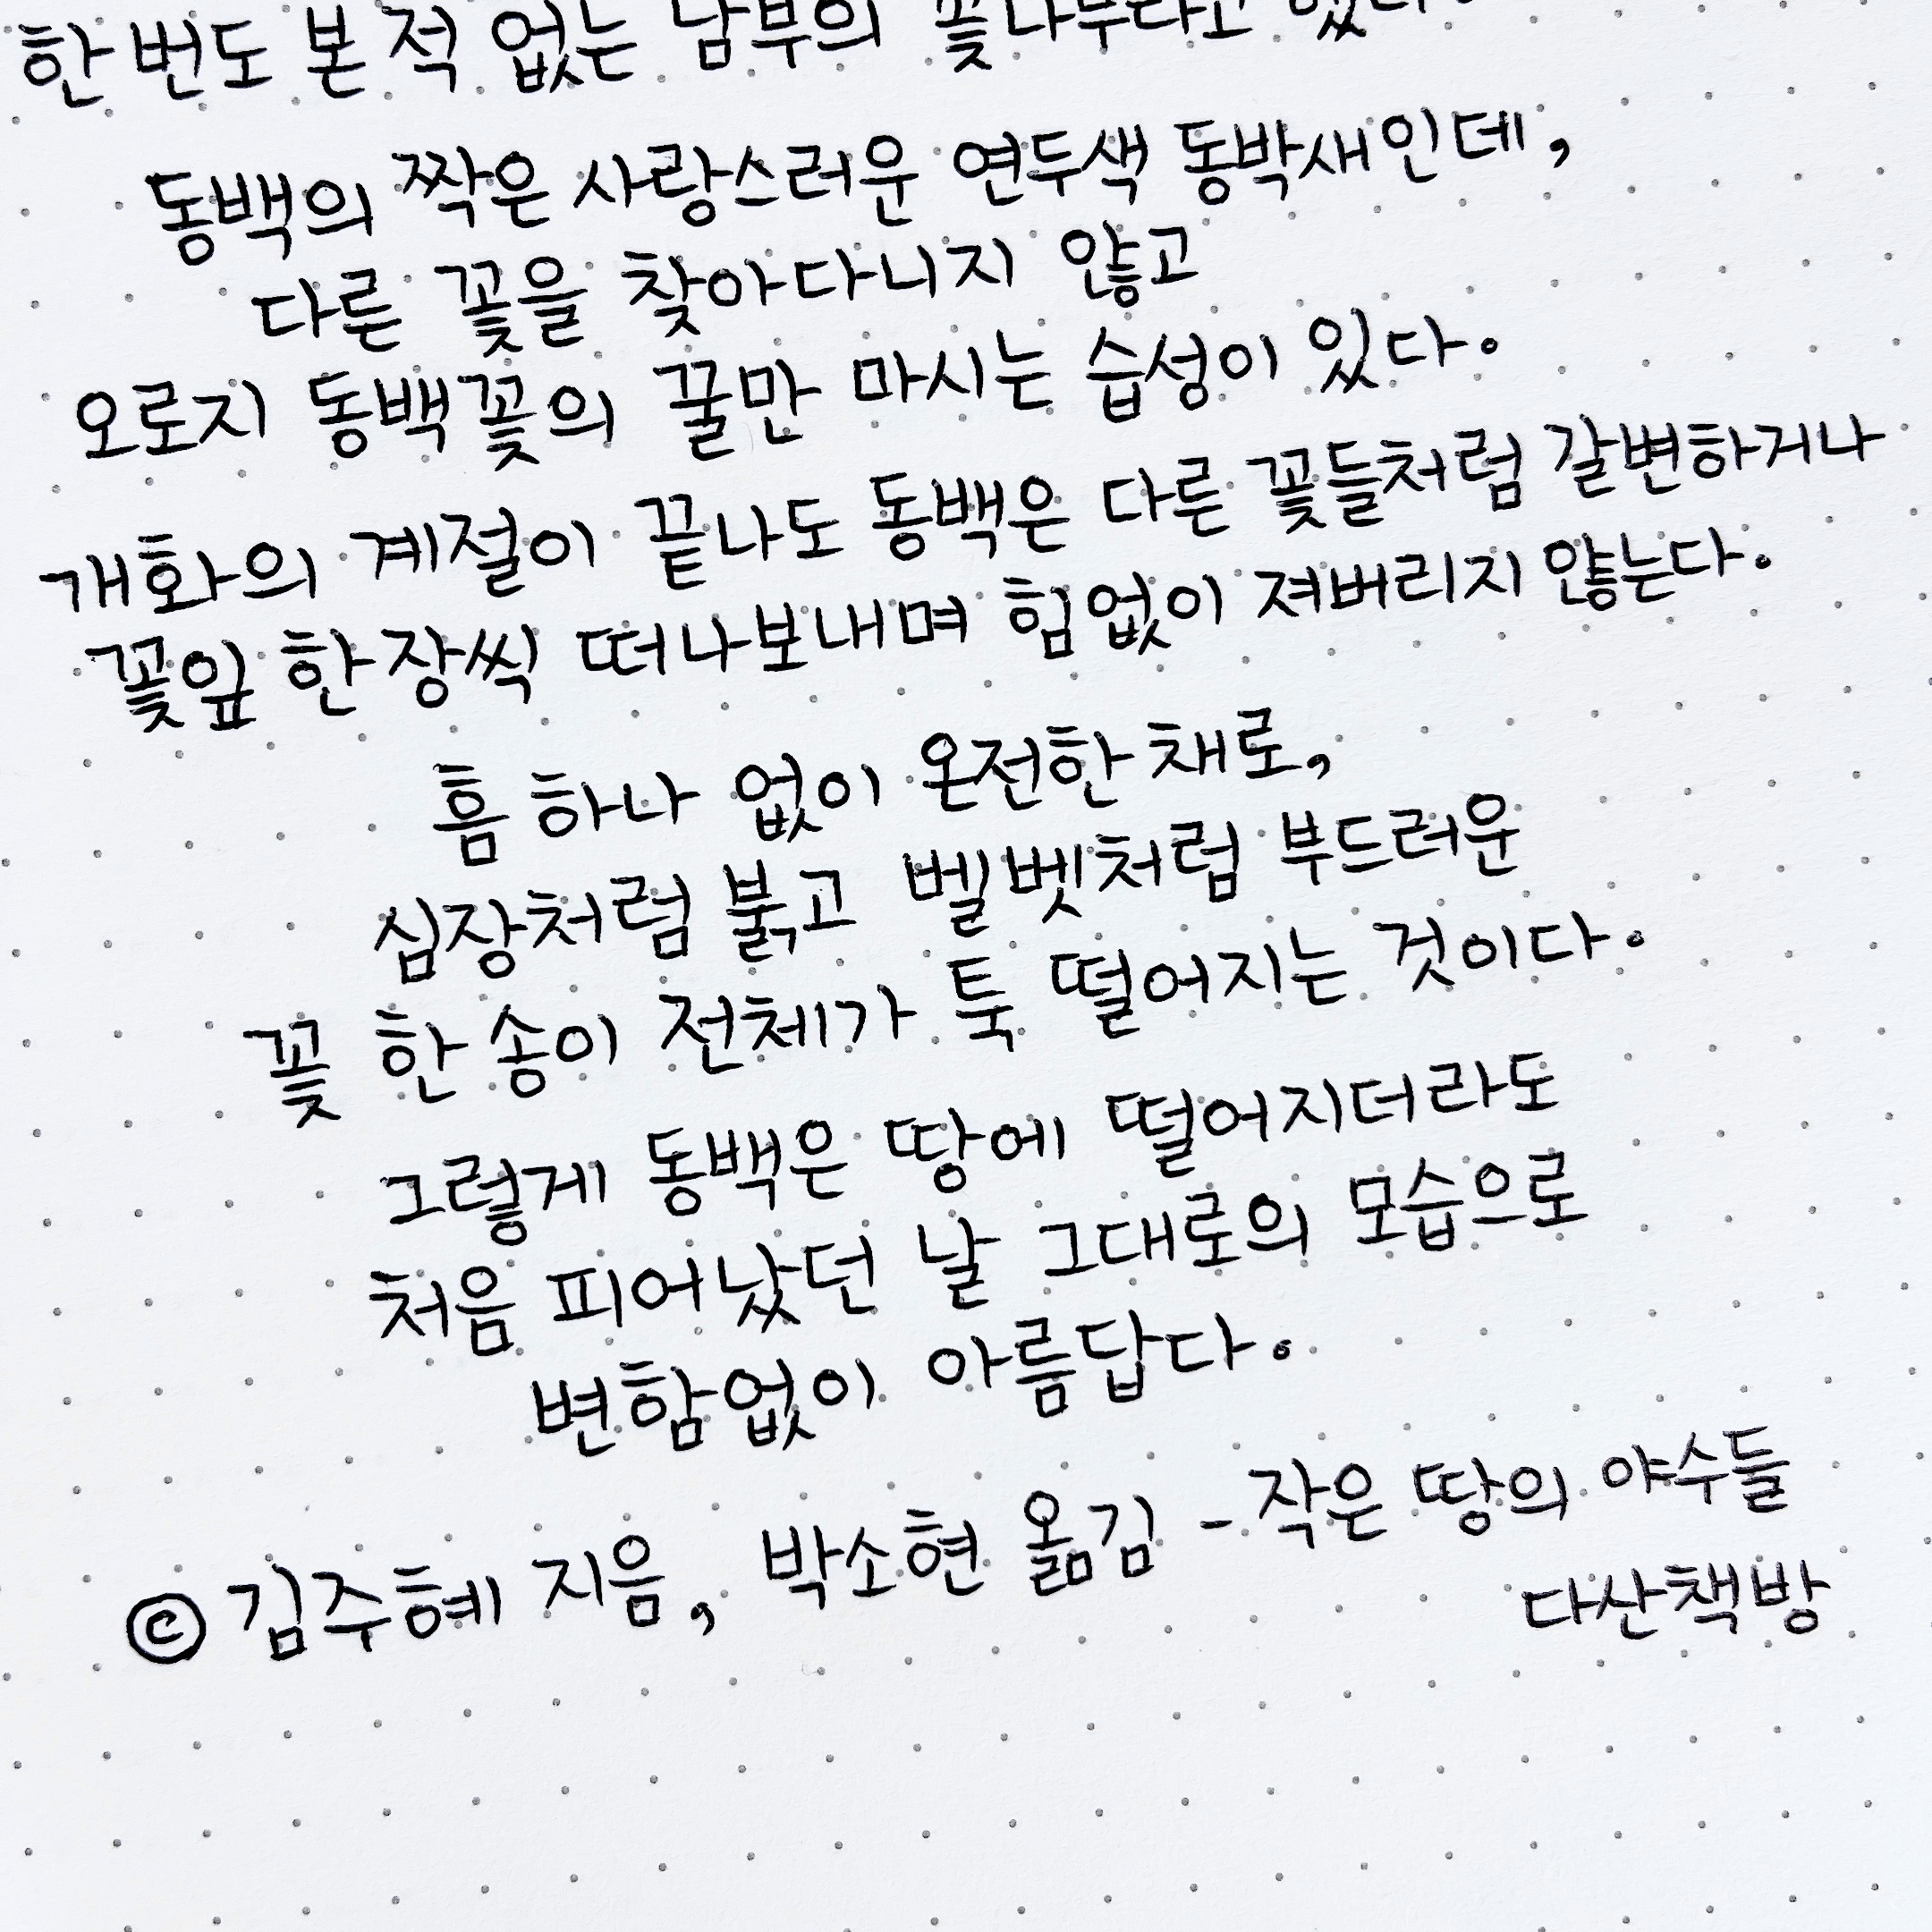 한 번도 본 적 없는 남부의 꽃나무라고 했다.
동백의 짝은 사랑스러운 연두색 동박새인데,
다른 꽃을 찾아다니지 않고
오로지 동백꽃의 꿀만 마시는 습성이 있다.
개화의 계절이 끝나도 동백은 다른 꽃들처럼 갈변하거나
꽃잎 한 장씩 떠나보내며 힘없이 져버리지 않는다.
흠 하나 없이 온전한 채로,
심장처럼 붉고 벨벳처럼 부드러운
꽃 한 송이 전체가 툭 떨어지는 것이다.
그렇게 동백은 땅에 떨어지더라도
처음 피어났던 날 그대로의 모습으로
변함없이 아름답다.
© 김주혜 지음, 박소현 옮김 - 작은 땅의 야수들
다산책방